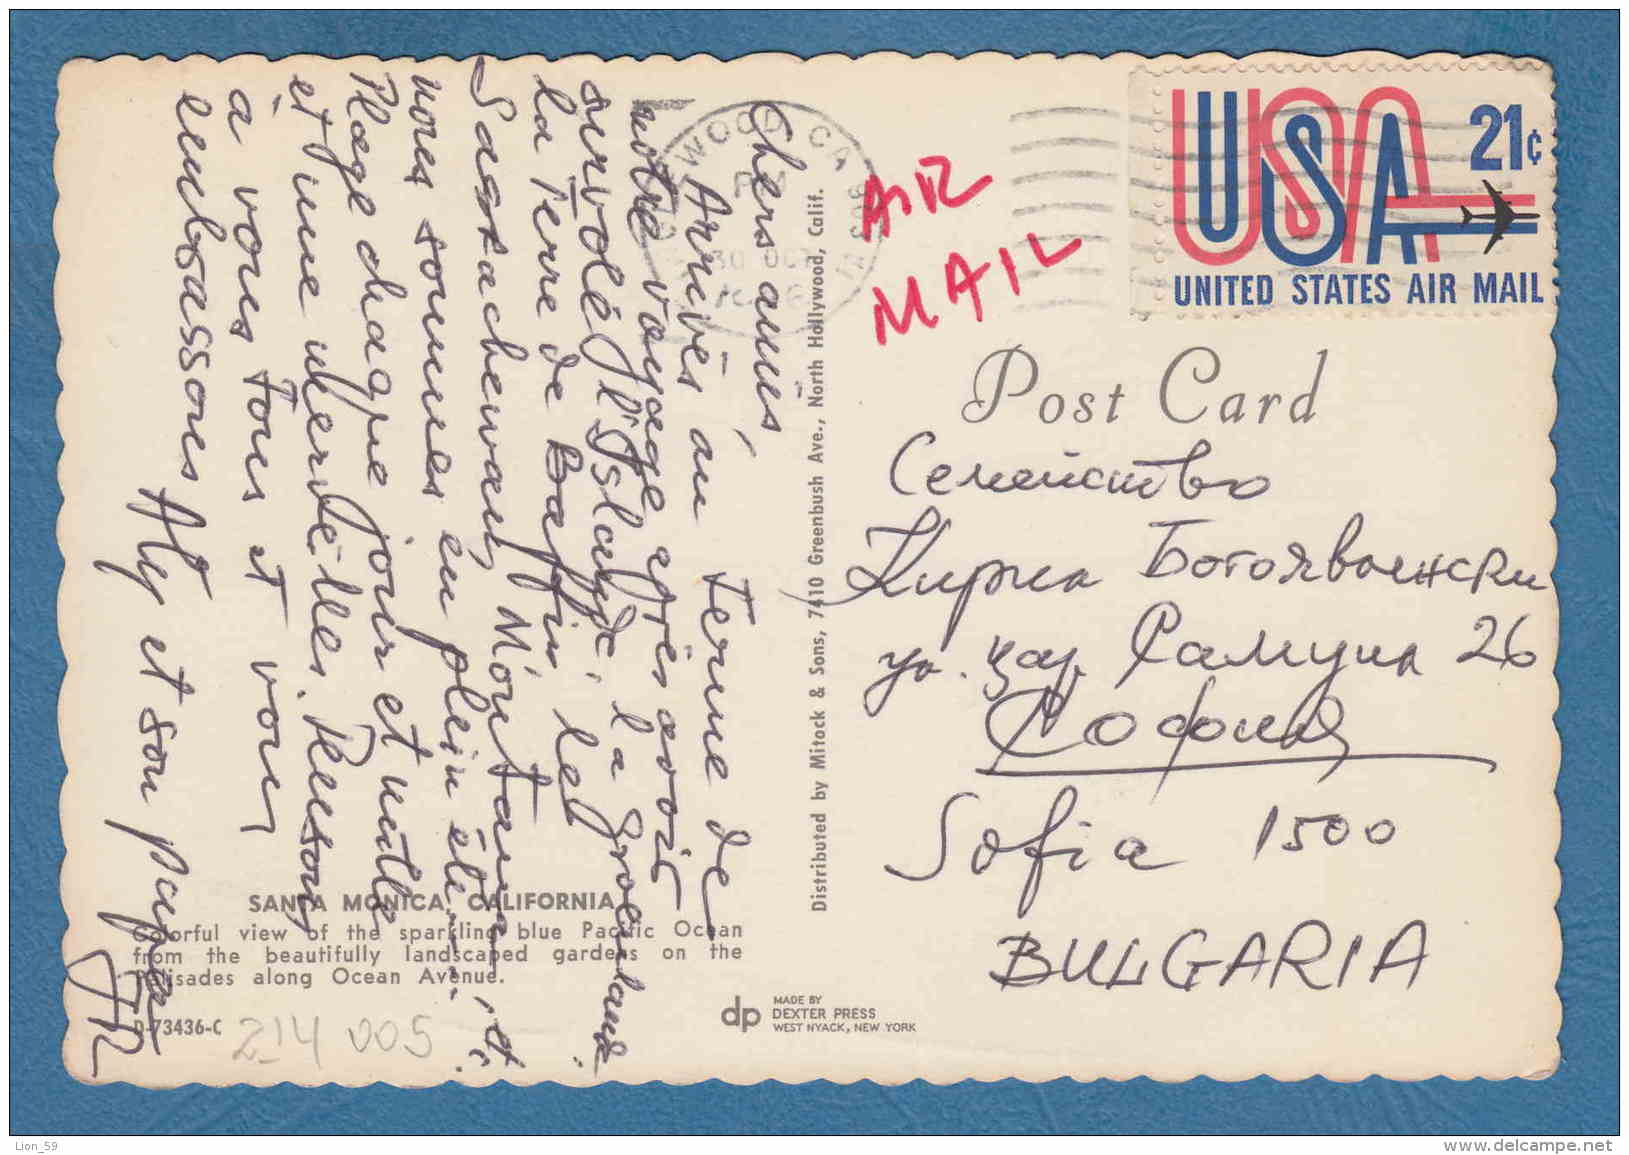 Chers amis,
Arrivés au terme de
notre voyage après avoir
survolé l'Islande, la Groenland
la Terre de Baffin, les
Saskachewan, Montana, et
nous sommes en plein été:
Plage chaque jour et mille
et une merveilles. Pensons
à vous tous et vous
embrassons Aly et son papa
USA 21c
UNITED STATES AIR MAIL
WOOD, CA
30 OCT
AIR
MAIL
Post Card
Семейство
Кирил Богоявленски
ул. Цар Самуил 26
София
Sofia 1500
BULGARIA
Distributed by Mitock & Sons, 7410 Greenbush Ave., North Hollywood, Calif.
SANTA MONICA, CALIFORNIA
Colorful view of the sparkling blue Pacific Ocean
from the beautifully landscaped gardens on the
Palisades along Ocean Avenue.
D-73436-C
214 005
dp MADE BY
DEXTER PRESS
WEST NYACK, NEW YORK
Lion_59
www.delcampe.net